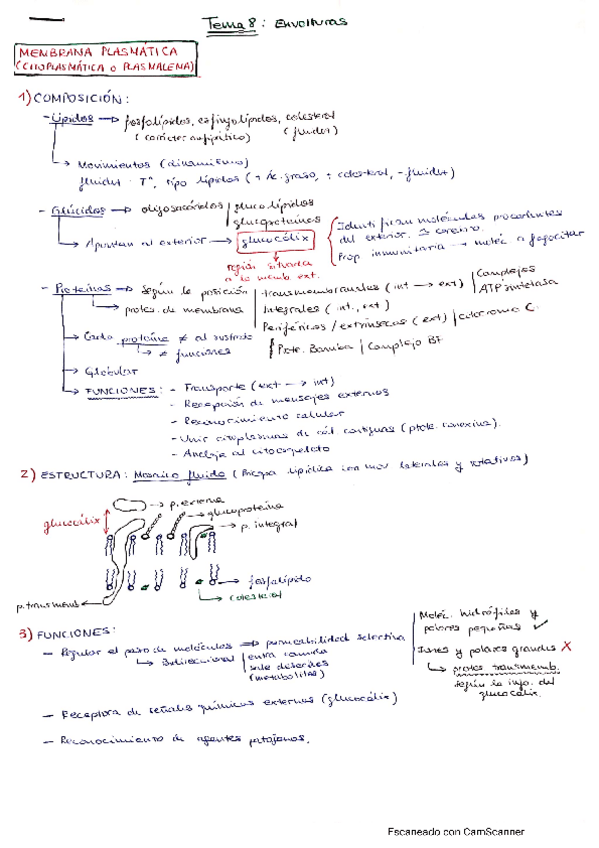 Tema 8: Envolturas
MEMBRANA PLASMÁTICA
(CITOPLASMÁTICA o PLASMALEMA)
1) COMPOSICIÓN:
- Lípidos → fosfolípidos, esfingolípidos, colesterol
(carácter anfipático) (fluidez)
→ Movimientos (dinamismo)
fluidez: Tª, tipo lípidos (+ Ác. graso, + colesterol, - fluidez)
- Glúcidos → oligosacáridos | glucolípidos
glucoproteínas
→ Apuntan al exterior → glucocálix
región situada
a la memb. ext.
Identifican moléculas procedentes
del exterior.
Prop. inmunitaria → moléc. a fagocitar
- Proteínas → Según la posición
→ protes. de membrana
Transmembranales (int → ext) | Complejos
ATP sintetasa
Integrales (int., ext)
Periféricas / extrínsecas (ext) | Citocromo C.
Prote. Bomba | Complejo B7
→ Cada proteína ≠ al sustrato
→ ≠ funciones
→ Globular
→ FUNCIONES: - Transporte (ext → int)
- Recepción de mensajes externos
- Reconocimiento celular
- Unir citoplasmas de cél. contiguas (prote. conexina).
- Anclaje al citoesqueleto
2) ESTRUCTURA: Mosaico fluido (Bicapa lipídica con mov. laterales y rotativos)
p. externa
glucoproteína
glucocálix
p. integral
fosfolípido
colesterol
p. transmemb
3) FUNCIONES:
- Regular el paso de moléculas → permeabilidad selectiva
→ Bidireccional | entra comida
sale desechos
(metabolitos)
Moléc. hidrófilas y
polares pequeñas ✓
Iones y polares grandes X
→ protes transmemb.
según la info. del
glucocálix.
- Receptora de señales químicas externas (glucocálix)
- Reconocimiento de agentes patógenos.
Escaneado con CamScanner